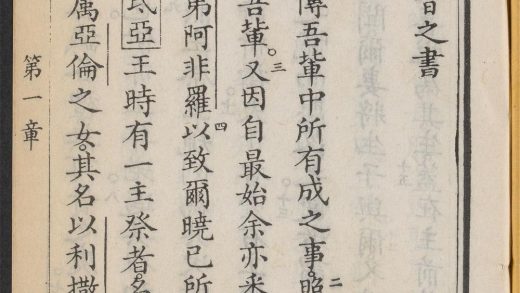 之書
傳吾輩中所有成之事。二照
吾輩。三又因自最始余亦
弟阿非羅四以致爾曉已所
亞王時有一主祭者。名
厲亞倫之女。其名以利撒
第一章